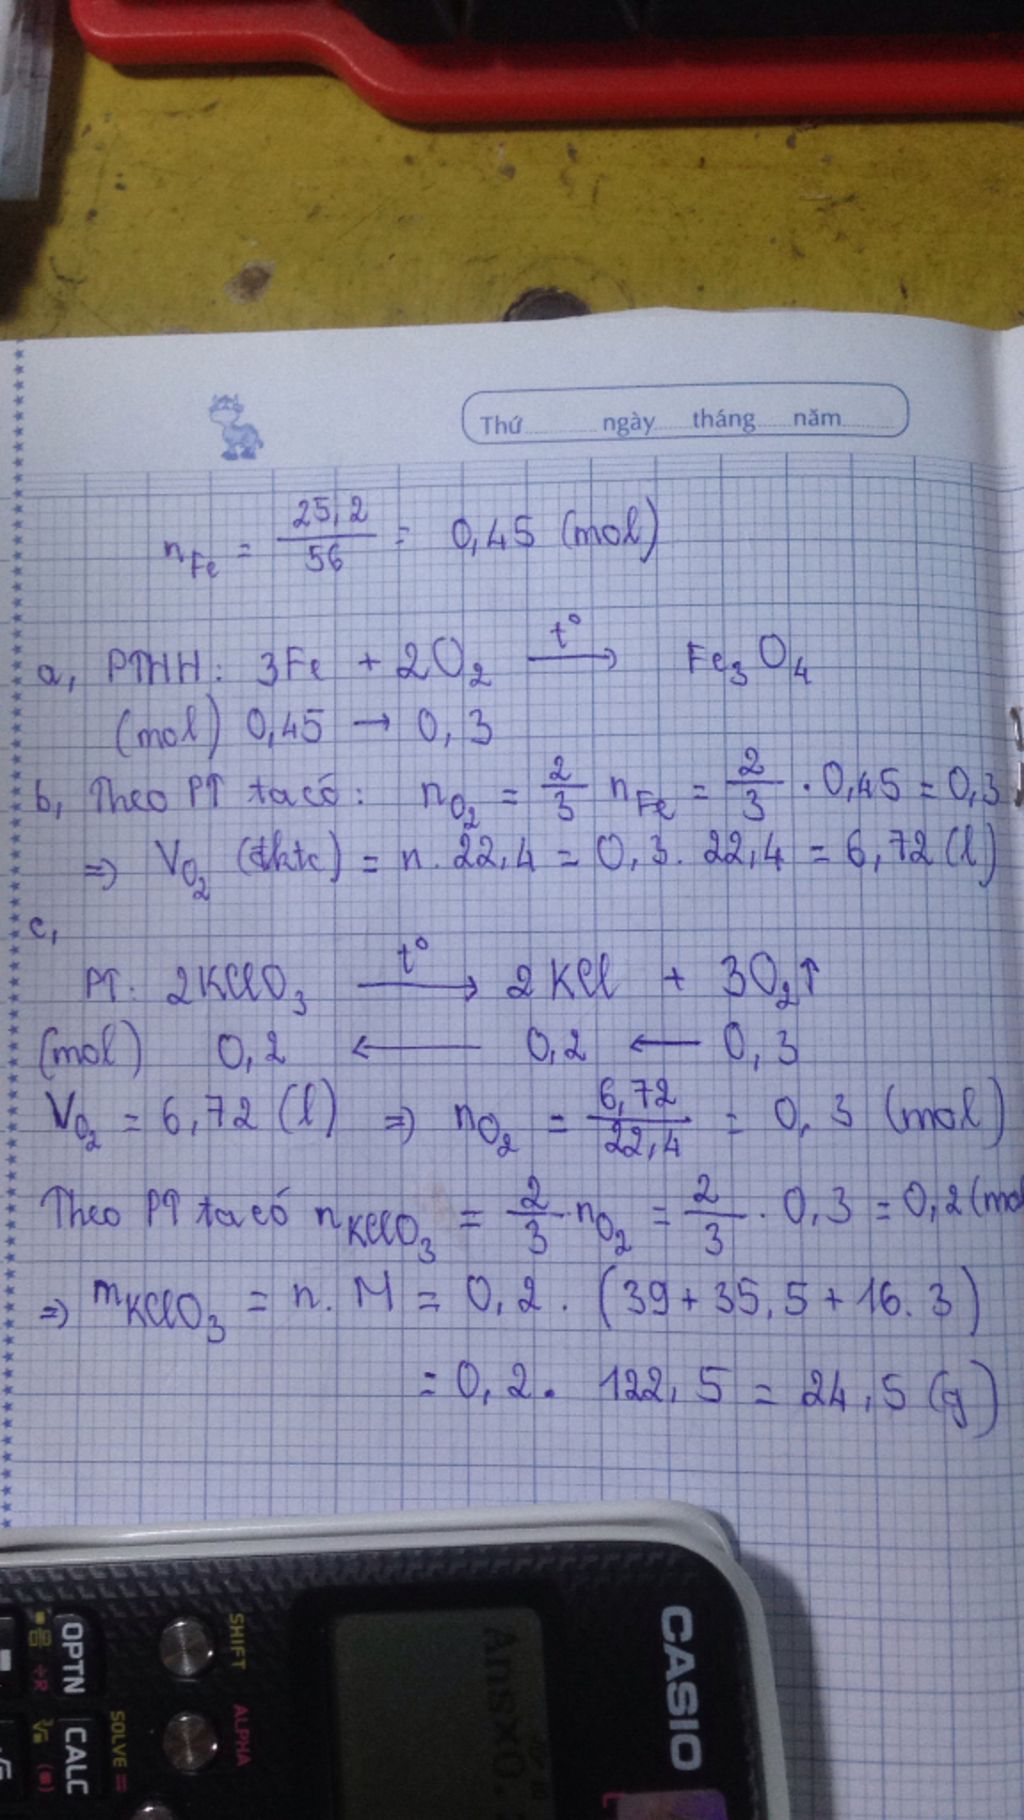 Thứ ngày tháng năm
n_Fe = 25,2/56 = 0,45 (mol)
a, PTHH: 3Fe + 2O₂ —t°→ Fe₃O₄
(mol) 0,45 → 0,3
b, Theo PT ta có: n_O₂ = 2/3 n_Fe = 2/3 . 0,45 = 0,3
=> V_O₂ (đktc) = n. 22,4 = 0,3. 22,4 = 6,72 (l)
c,
PT: 2KClO₃ —t°→ 2KCl + 3O₂↑
(mol) 0,2 ← 0,2 ← 0,3
V_O₂ = 6,72 (l) => n_O₂ = 6,72/22,4 = 0,3 (mol)
Theo PT ta có n_KClO₃ = 2/3 . n_O₂ = 2/3 . 0,3 = 0,2 (mol
=> m_KClO₃ = n. M = 0,2. (39+35,5+16.3)
= 0,2. 122,5 = 24,5 (g)
CASIO
SHIFT
ALPHA
OPTN
SOLVE =
CALC